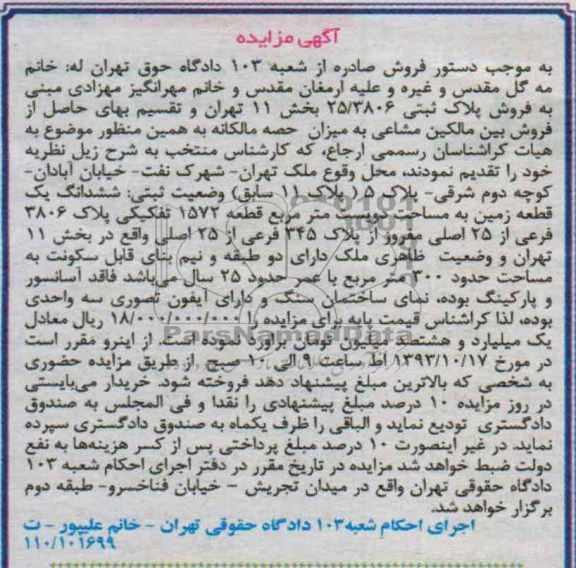 آگهی مزایده
به موجب دستور فروش صادره از شعبه ۱۰۳ دادگاه حوق تهران له: خانم
مه گل مقدس و غیره و علیه ارمغان مقدس و خانم مهرانگیز مهزادی مبنی
به فروش پلاک ثبتی ۲۵/۳۸۰۶ بخش ۱۱ تهران و تقسیم بهای حاصل از
فروش بین مالکین مشاعی به میزان حصه مالکانه به همین منظور موضوع به
هیات کراشناسان رسممی ارجاع، که کارشناس منتخب به شرح زیل نظریه
خود را تقدیم نمودند، محل وقوع ملک تهران- شهرک نفت- خیابان آبادان-
کوچه دوم شرقی- پلاک ۵ ( پلاک ۱۱ سابق) وضعیت ثبتی: ششدانگ یک
قطعه زمین به مساحت دویست متر مربع قطعه ۱۵۷۲ تفکیکی پلاک ۳۸۰۶
فرعی از ۲۵ اصلی مفروز از پلاک ۳۴۵ فرعی از ۲۵ اصلی واقع در بخش ۱۱
تهران و وضعیت ظاهری ملک دارای دو طبقه و نیم بنای قابل سکونت به
مساحت حدود ۳۰۰ متر مربع با عمر حدود ۲۵ سال می‌باشد فاقد آسانسور
و پارکینگ بوده، نمای ساختمان سنگ و دارای آیفون تصوری سه واحدی
بوده، لذا کراشناس قیمت پایه برای مزایده را ۱۸/۰۰۰/۰۰۰/۰۰۰ ریال معادل
یک میلیارد و هشتصد میلیون تومان برآورد نموده است. از اینرو مقرر است
در مورخ ۱۳۹۳/۱۰/۱۷ از ساعت ۹ الی ۱۰ صبح از طریق مزایده حضوری
به شخصی که بالاترین مبلغ پیشنهاد دهد فروخته شود. خریدار می‌بایستی
در روز مزایده ۱۰ درصد مبلغ پیشنهادی را نقدا و فی المجلس به صندوق
دادگستری تودیع نماید و الباقی را ظرف یکماه به صندوق دادگستری سپرده
نماید. در غیر اینصورت ۱۰ درصد مبلغ پرداختی پس از کسر هزینه‌ها به نفع
دولت ضبط خواهد شد مزایده در تاریخ مقرر در دفتر اجرای احکام شعبه ۱۰۳
دادگاه حقوقی تهران واقع در میدان تجریش – خیابان فناخسرو- طبقه دوم
برگزار خواهد شد.
اجرای احکام شعبه۱۰۳ دادگاه حقوقی تهران - خانم علیپور - ت
۱۱۰/۱۰۱۶۹۹
ParsNamadData